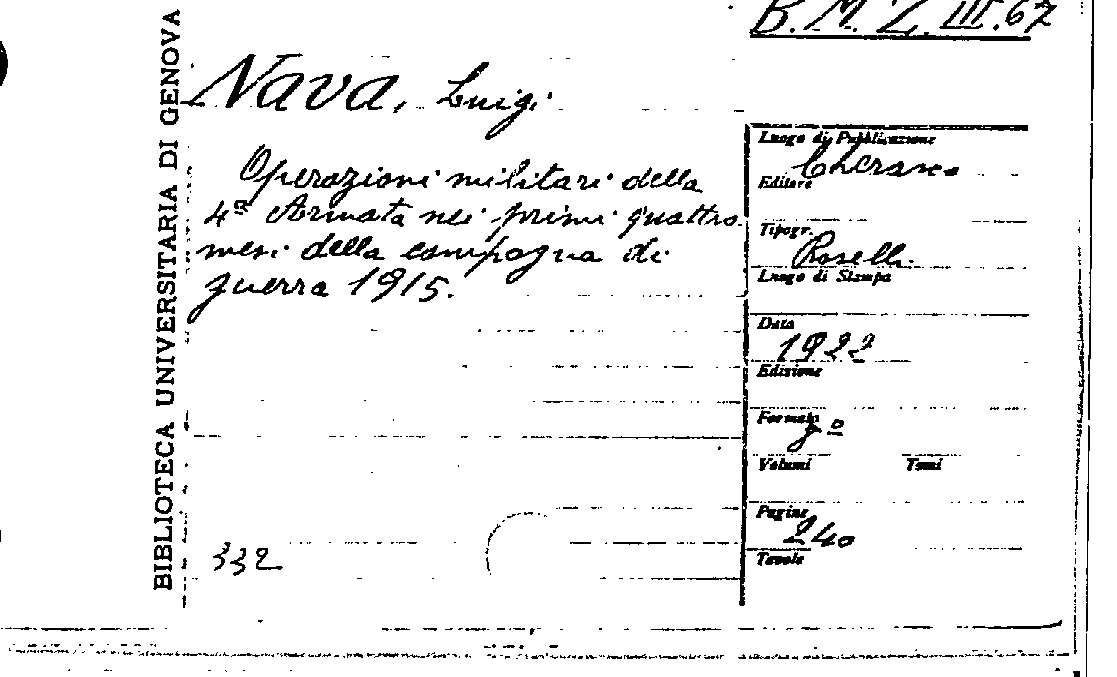 B. M. Z. III. 67
BIBLIOTECA UNIVERSITARIA DI GENOVA
Nava, Luigi
Operazioni militari della
4ª Armata nei primi quattro
mesi della campagna di
guerra 1915.
332
Luogo di Pubblicazione
Cherasco
Editore
Tipogr.
Roselli
Luogo di Stampa
Data
1922
Edizione
Formato
8º
Volumi Tomi
Pagine
240
Tavole